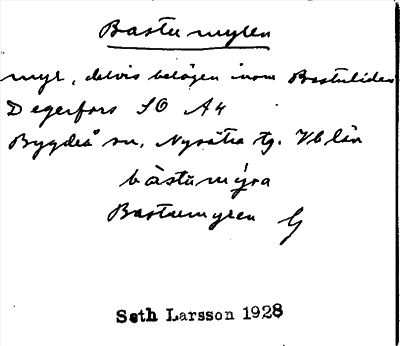 Bastumyren
myr, delvis belägen inom Bastulidens
Degerfors SO A4
Bygdeå sn, Nysätra tg. Vb län
bàstumýra
Bastumyren G
Seth Larsson 1928